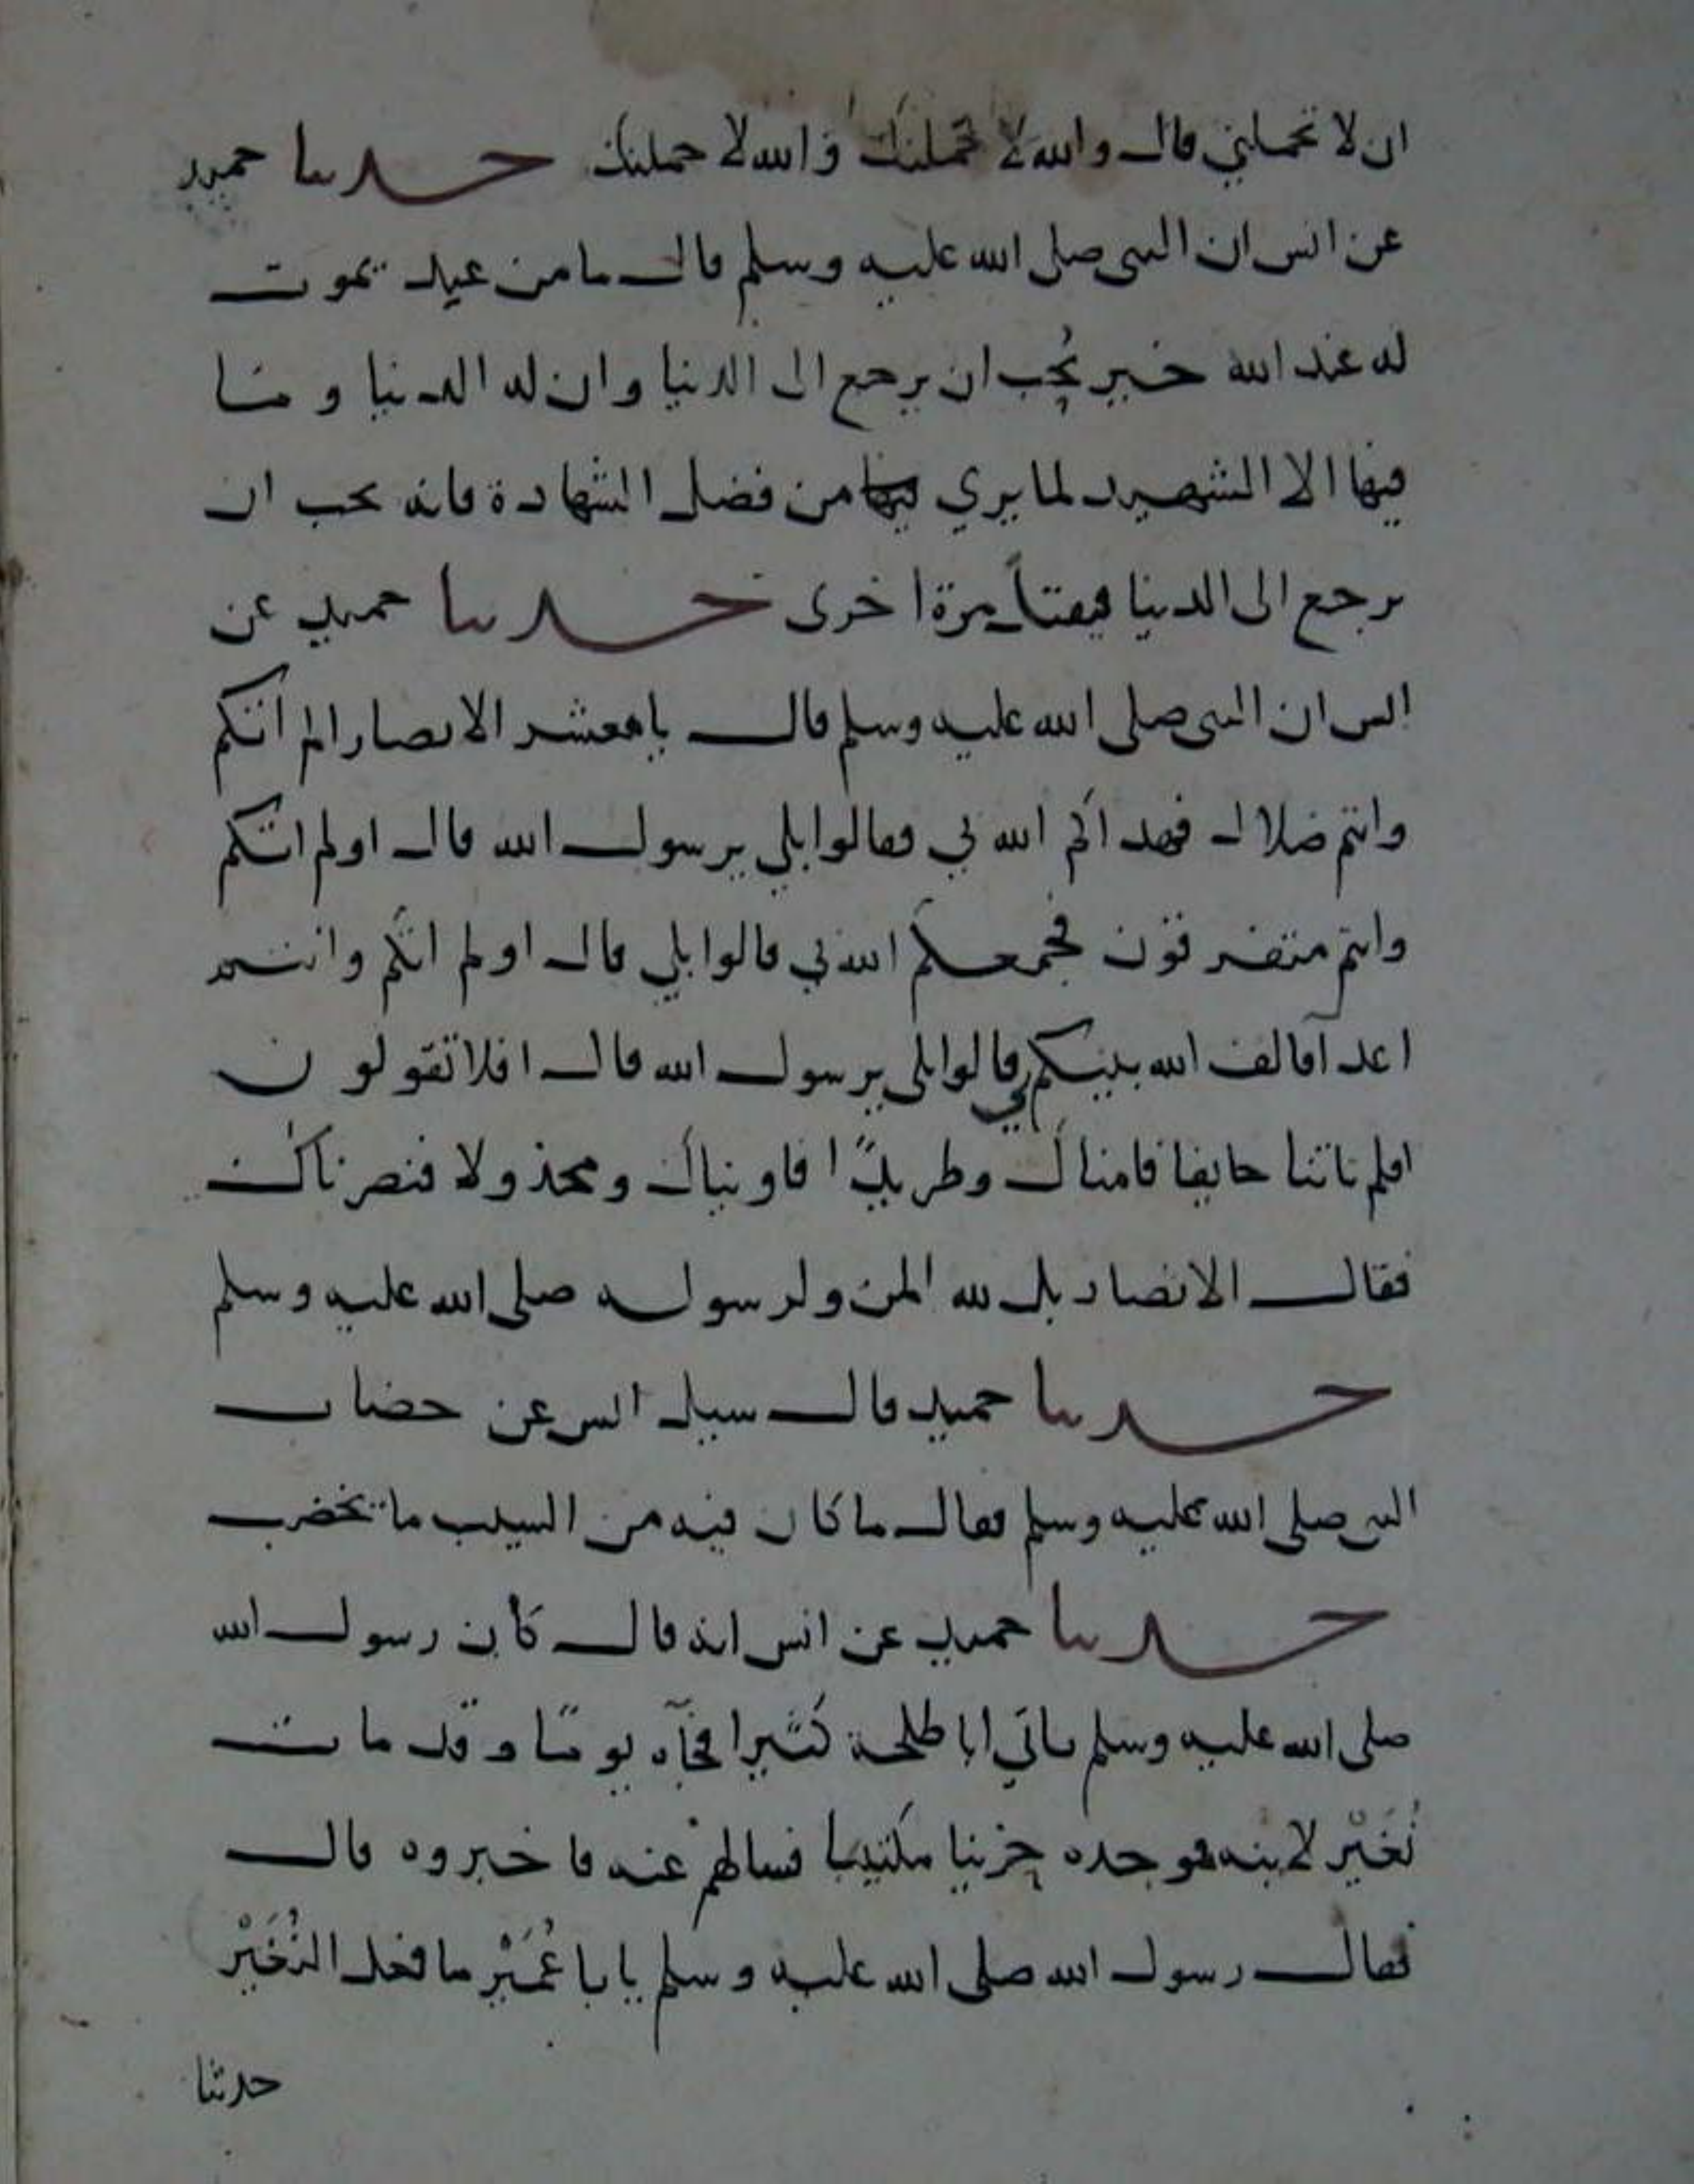 ان لا تحملني قال والله لا تحملنك والله لا حملنك حدثنا حميد
عن انس ان النبي صلى الله عليه وسلم قال ما من عبد يموت
له عند الله خير يحب ان يرجع الى الدنيا وان له الدنيا وما
فيها الا الشهيد لما يري من فضل الشهادة فانه يحب ان
يرجع الى الدنيا فيقتل مرة اخرى حدثنا حميد عن
انس ان النبي صلى الله عليه وسلم قال يا معشر الانصار الم اتكم
وانتم ضلال فهداكم الله بي فقالوا بلي يرسول الله قال اولم اتكم
وانتم متفرقون فجمعكم الله بي قالوا بلي قال اولم اتكم وانتم
اعدآ فالف الله بينكم بي قالوا بلى يرسول الله قال افلا تقولون
افلم تاتنا خايفا فامناك وطريدًا فاويناك ومخذولا فنصرناك
فقال الانصار بل لله المن ولرسوله صلى الله عليه وسلم
حدثنا حميد قال سيل انس عن خضاب
النبي صلى الله عليه وسلم فقال ما كان فيه من الشيب ما يخضب
حدثنا حميد عن انس انه قال كان رسول الله
صلى الله عليه وسلم ياتي ابا طلحة كثيرا فجآه يومًا وقد مات
نُغَيْر لابنه فوجده حزينا مكتيبا فسالهم عنه فاخبروه قال
فقال رسول الله صلى الله عليه وسلم يا با عُمَيْر ما فعل النُغَيْر
حدثنا